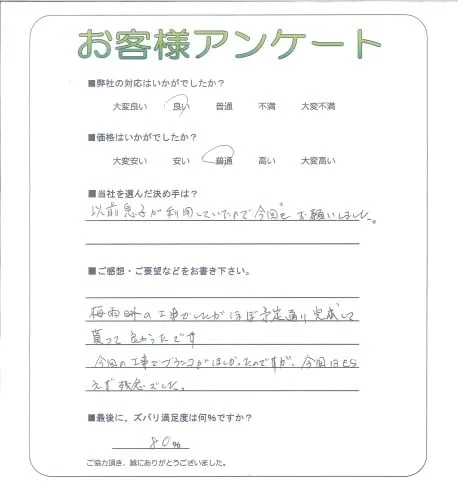 お客様アンケート
■弊社の対応はいかがでしたか？
大変良い 良い 普通 不満 大変不満
■価格はいかがでしたか？
大変安い 安い 普通 高い 大変高い
■当社を選んだ決め手は？
以前息子が利用していたので今回もお願いしました。
■ご感想・ご要望などをお書き下さい。
梅雨時の工事でしたがほぼ予定通り完成して
貰って良かったです
今回の工事でブランコがほしかったのですが、今回はもら
えず残念でした。
■最後に、ズバリ満足度は何%ですか？
80%
ご協力頂き、誠にありがとうございました。